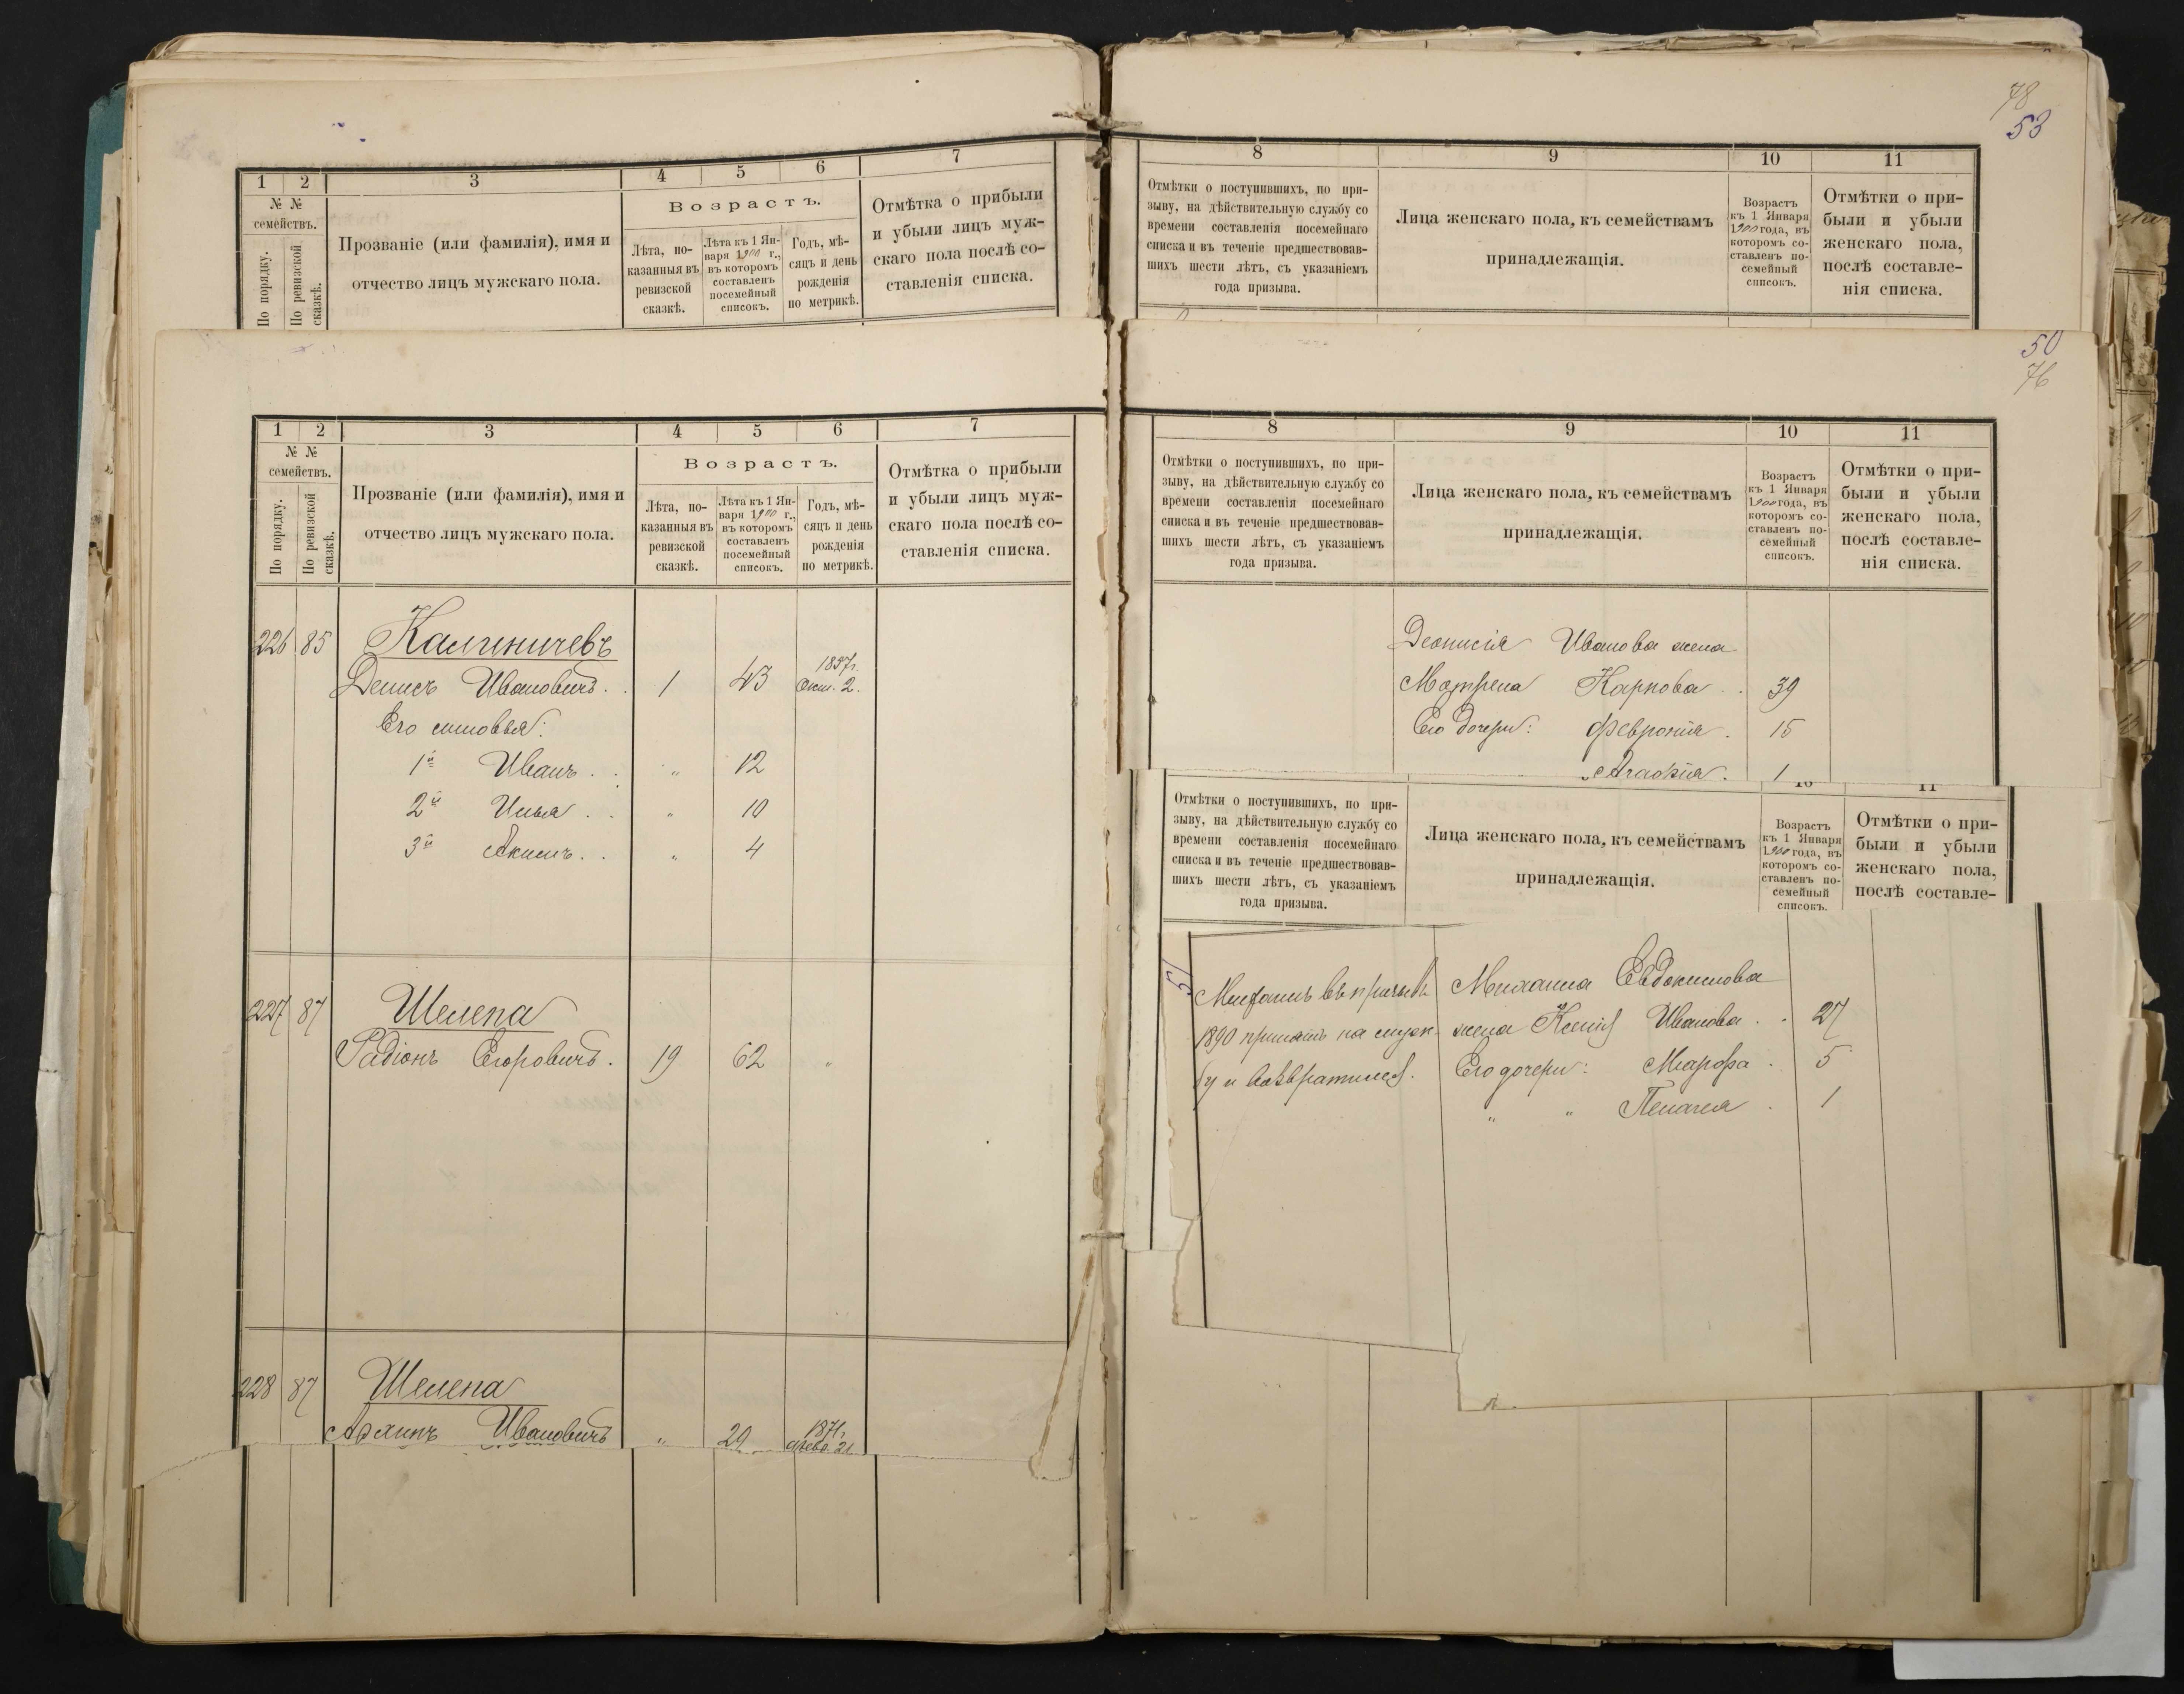 78
53
1 2 3 4 5 6 7
№ №
семействъ.
По порядку.
По ревизской
сказкѣ.
Прозваніе (или фамилія), имя и
отчество лицъ мужскаго пола.
Возрастъ.
Лѣта, по-
казанныя въ
ревизской
сказкѣ.
Лѣта къ 1 Ян-
варя 1900 г.,
въ которомъ
составленъ
посемейный
списокъ.
Годъ, мѣ-
сяцъ и день
рожденія
по метрикѣ.
Отмѣтка о прибыли
и убыли лицъ муж-
скаго пола послѣ со-
ставленія списка.
8 9 10 11
Отмѣтки о поступившихъ, по при-
зыву, на дѣйствительную службу со
времени составленія посемейнаго
списка и въ теченіе предшествовав-
шихъ шести лѣтъ, съ указаніемъ
года призыва.
Лица женскаго пола, къ семействамъ
принадлежащія.
Возрастъ
къ 1 Января
1900 года, въ
которомъ со-
ставленъ по-
семейный
списокъ.
Отмѣтки о при-
были и убыли
женскаго пола,
послѣ составле-
нія списка.
50
76
1 2 3 4 5 6 7
№ №
семействъ.
По порядку.
По ревизской
сказкѣ.
Прозваніе (или фамилія), имя и
отчество лицъ мужскаго пола.
Возрастъ.
Лѣта, по-
казанныя въ
ревизской
сказкѣ.
Лѣта къ 1 Ян-
варя 1900 г.,
въ которомъ
составленъ
посемейный
списокъ.
Годъ, мѣ-
сяцъ и день
рожденія
по метрикѣ.
Отмѣтка о прибыли
и убыли лицъ муж-
скаго пола послѣ со-
ставленія списка.
226 85 Калиничевъ
Денисъ Ивановичъ. 1 43 1857г.
Окт. 2.
Его сыновья:
1й Иванъ . . " 12
2й Илья . . " 10
3й Акимъ . . " 4
227 87 Шелепа
Радіонъ Егоровичъ. 19 62 "
228 87 Шелепа
Ивановичъ " 29 1871г.
Февр. 21
8 9 10 11
Отмѣтки о поступившихъ, по при-
зыву, на дѣйствительную службу со
времени составленія посемейнаго
списка и въ теченіе предшествовав-
шихъ шести лѣтъ, съ указаніемъ
года призыва.
Лица женскаго пола, къ семействамъ
принадлежащія.
Возрастъ
къ 1 Января
1900 года, въ
которомъ со-
ставленъ по-
семейный
списокъ.
Отмѣтки о при-
были и убыли
женскаго пола,
послѣ составле-
нія списка.
Деонисія Иванова жена
Матрена Карпова . . 39
Его дочери: Февронія . 15
" Агафія . 1
10 11
Отмѣтки о поступившихъ, по при-
зыву, на дѣйствительную службу со
времени составленія посемейнаго
списка и въ теченіе предшествовав-
шихъ шести лѣтъ, съ указаніемъ
года призыва.
Лица женскаго пола, къ семействамъ
принадлежащія.
Возрастъ
къ 1 Января
1900 года, въ
которомъ со-
ставленъ по-
семейный
списокъ.
Отмѣтки о при-
были и убыли
женскаго пола,
послѣ составле-
51
Михаилъ въ призывъ
1890 принятъ на служ-
бу и возвратился.
Михаила Евдокимова
жена Ксенія Иванова . . 27
Его дочери: Марфа . 5
" " Пелагея . 1